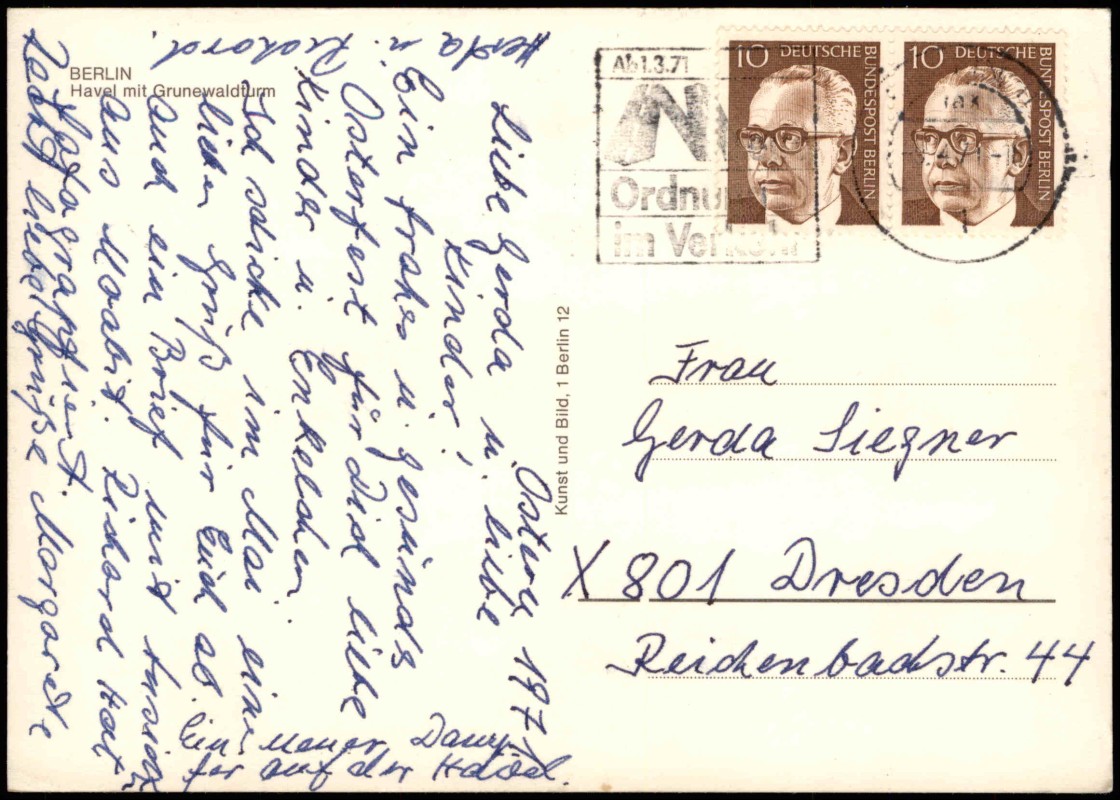 BERLIN
Havel mit Grunewaldturm
Kunst und Bild, 1 Berlin 12
Ostern 1971
Liebe Gerda u. liebe
Kinder!
Ein frohes u. gesundes
Osterfest für Dich liebe
Kinder u. Enkelchen.
Ich schicke im Mai einen
lieben Gruß für Euch ab.
Auch ein Brief mit
aus Moabit. Richard hat
fotographiert.
liebe Grüße Margarete
Herta u. Richard.
Ein neuer Damp-
fer auf der Havel.
Ab 1.3.71
Ordnung
im Verkehr
10 DEUTSCHE BUNDESPOST BERLIN
10 DEUTSCHE BUNDESPOST BERLIN
Frau
Gerda Siegner
X 801 Dresden
Reichenbachstr. 44